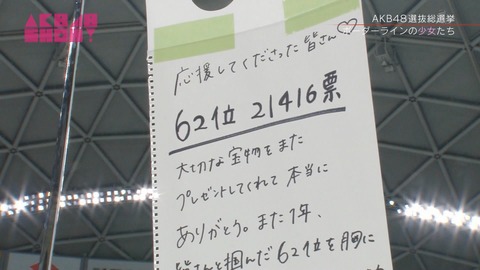 AKB48 SHOW!
AKB48選抜総選挙
ボーダーラインの少女たち
応援してくださった皆さん♡
62位 21416票
大切な宝物をまた
プレゼントしてくれて本当に
ありがとう。また1年、
皆さんと掴んだ62位を胸に